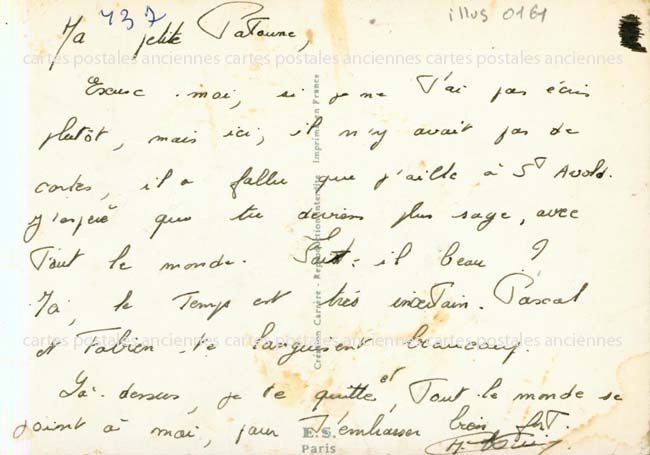 737
illus 0161
Ma petite Patoune,
Excuse-moi, si je ne t'ai pas écris
plutôt, mais ici, il n'y avait pas de
cartes, il a fallu que j'aille à St Avold.
J'espère que tu deviens plus sage, avec
tout le monde. Fait-il beau ?
Ici, le temps est très incertain. Pascal
et Fabien te languissent beaucoup.
Là-dessus, je te quitte et, tout le monde se
joint à moi, pour t'embrasser bien fort.
Création Carrère - Reproduction interdite Imprimé en France
E.S.
Paris
cartes postales anciennes cartes postales anciennes cartes postales anciennes
cartes postales anciennes cartes postales anciennes cartes postales anciennes